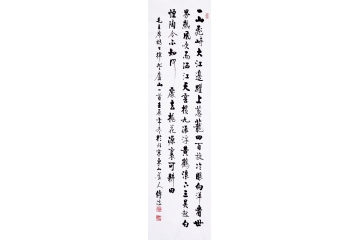 一山飛峙大江邊躍上葱蘢四百旋冷眼向洋看世
界熱風吹雨洒江天雲橫九派浮黃鶴浪下三吳起白
煙陶令不知何處去桃花源裏可耕田
毛主席七律登廬山一首